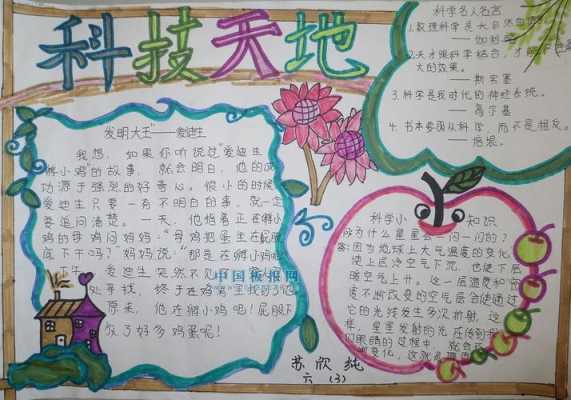 科技天地
科学名人名言
1.数理科学是大自然
——伽利略
2.天才跟科学结合，才能
大的效果。
——斯宾塞
3.科学是我时代的神经系统。
——高尔基
4.书本要跟从科学，而不是相反。
——培根。
发明大王"——爱迪生
我想，如果你听说过"爱迪生
孵小鸡"的故事，就会明白，他的成
功源于强烈的好奇心。很小的时候
爱迪生只要一有不明白的事，就一定
要追问清楚。一天，他指着正在孵小
鸡的母鸡问妈妈："母鸡把蛋坐在屁股
底下干吗？"妈妈说："那是在孵小鸡呢
午，爱迪生突然不见
处寻找，终于在鸡窝里找到了他
原来，他在孵小鸡吧！屁股下
放了好多鸡蛋呢！
中国板报网
科学小知识
为什么星星会一闪一闪的？
答：因为地球上大气温度的变化
使上层冷空气下沉，也使下层
暖空气上升。这一层温度和密
度不断改变的空气层会使通过
它的光线发生多次折射，这
样，星星发射的光在传到我
们眼睛的过程中，就会
变化，这就
苏欣纯
六（3）